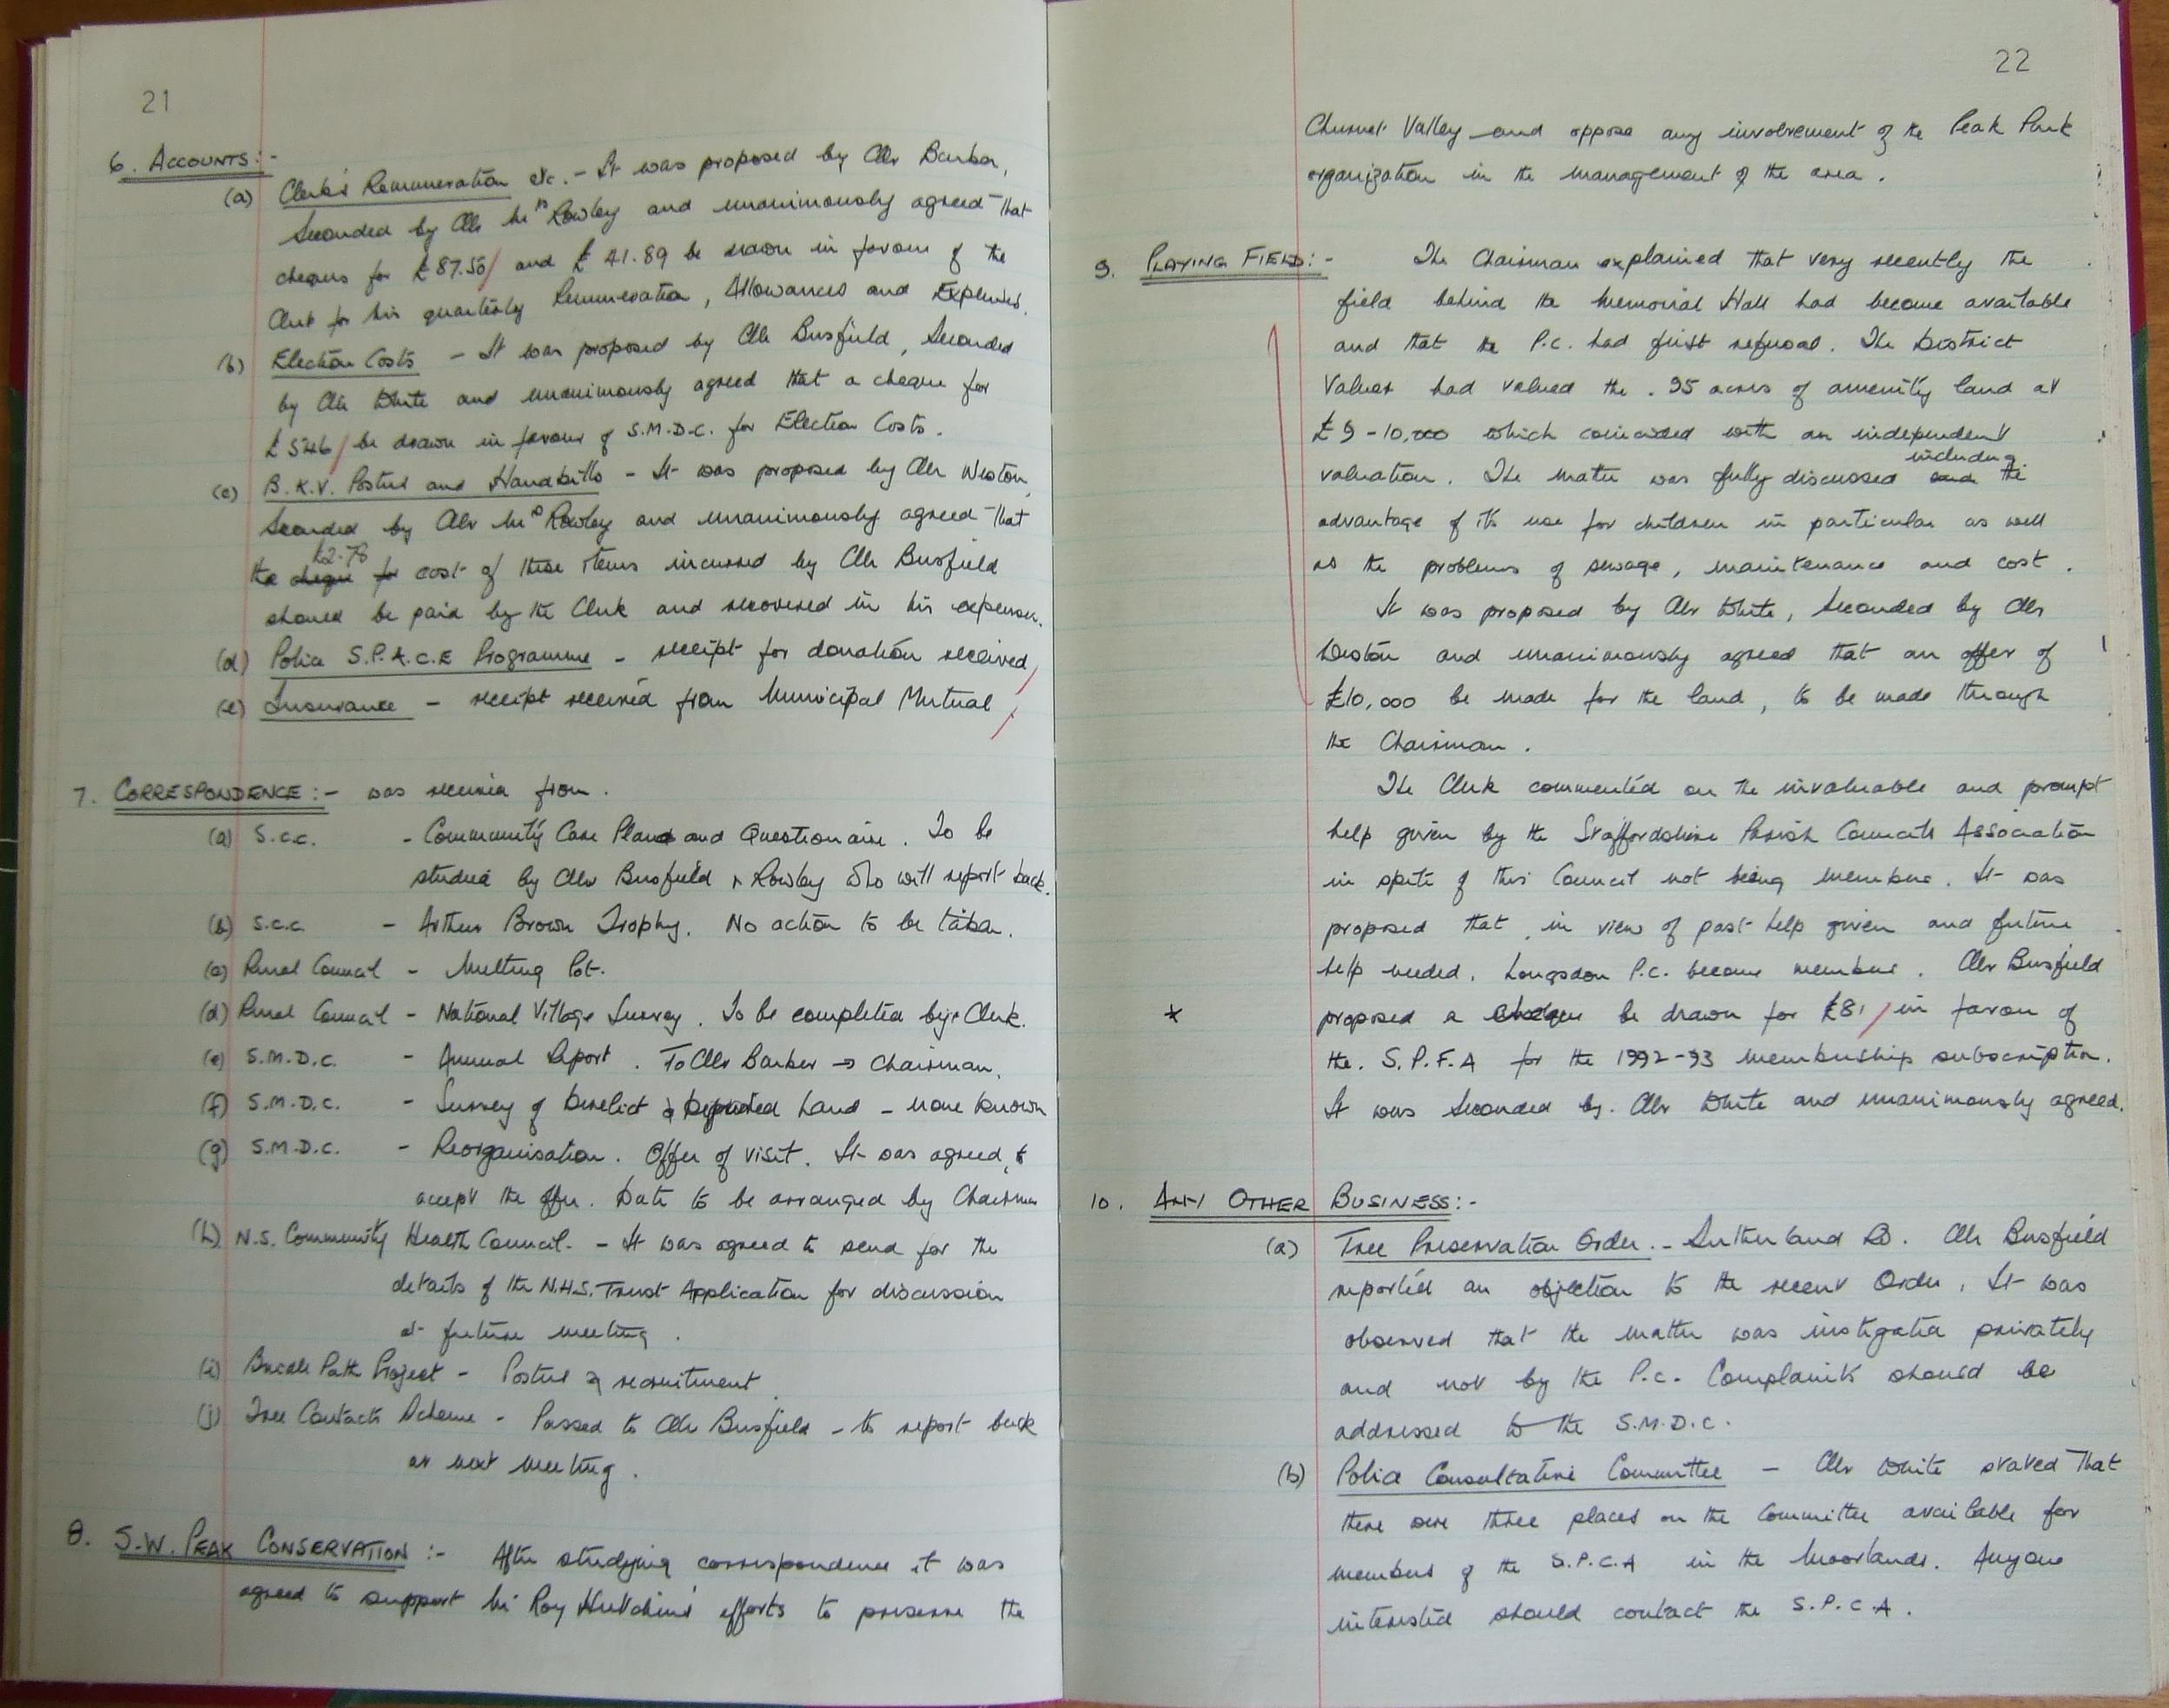 21
6. ACCOUNTS:-
(a) Clerk's Remuneration etc. - It was proposed by Cllr Barber,
Seconded by Cllr Mrs Rowley and unanimously agreed that
cheques for £87.50/ and £41.89 be drawn in favour of the
Clerk for his quarterly Remuneration, Allowances and Expenses.
(b) Election Costs - It was proposed by Cllr Busfield, Seconded
by Cllr White and unanimously agreed that a cheque for
£546/ be drawn in favour of S.M.D.C. for Election Costs.
(c) B.K.V. Posters and Handbills - It was proposed by Cllr Weston,
Seconded by Cllr Mrs Rowley and unanimously agreed that
£2.78
the cheque for cost of these items incurred by Cllr Busfield
should be paid by the Clerk and recovered in his expenses.
(d) Police S.P.A.C.E Programme - receipt for donation received/
(e) Insurance - receipt received from Municipal Mutual /
7. CORRESPONDENCE:- was received from.
(a) S.C.C. - Community Care Plan and Questionaire. To be
studied by Cllrs Busfield & Rowley who will report back.
(b) S.C.C. - Arthur Brown Trophy. No action to be taken.
(c) Rural Council - Melting Pot.
(d) Rural Council - National Village Survey. To be completed by Clerk.
(e) S.M.D.C. - Annual Report. To Cllr Barber → Chairman.
(f) S.M.D.C. - Survey of Derelict & Land - none known
(g) S.M.D.C. - Reorganisation. Offer of visit. It was agreed, to
accept the offer. Date to be arranged by Chairman
(h) N.S. Community Health Council. - It was agreed to send for the
details of the N.H.S. Trust Application for discussion
at future meeting.
(i) Bridle Path Project - Poster & recruitment
(j) Tree Contacts Scheme - Passed to Cllr Busfield - to report back
at next meeting.
8. S.W. PEAK CONSERVATION:- After studying correspondence it was
agreed to support Mr Roy Hutchins' efforts to preserve the
22
Churnet Valley and oppose any involvement of the Peak Park
organization in the management of the area.
9. PLAYING FIELD:- The Chairman explained that very recently the
field behind the Memorial Hall had become available
and that the P.C. had first refusal. The District
Valuer had valued the .95 acres of amenity land at
£9-10,000 which coincided with an independent
including
valuation. The matter was fully discussed and the
advantage of its use for children in particular as well
as the problems of sewage, maintenance and cost.
It was proposed by Cllr White, Seconded by Cllr
Weston and unanimously agreed that an offer of
£10,000 be made for the land, to be made through
the Chairman.
The Clerk commented on the invaluable and prompt
help given by the Staffordshire Parish Councils Association
in spite of this Council not being members. It was
proposed that, in view of past help given and future
help needed, Longsdon P.C. become members. Cllr Busfield
* proposed a cheque be drawn for £81/ in favour of
the. S.P.F.A for the 1992-93 membership subscription.
It was Seconded by. Cllr White and unanimously agreed.
10. ANY OTHER BUSINESS:-
(a) Tree Preservation Order. - Sutherland Rd. Cllr Busfield
reported an objection to the recent Order. It was
observed that the matter was instigated privately
and not by the P.C. Complaints should be
addressed to the S.M.D.C.
(b) Police Consultative Committee - Cllr White stated that
there were three places on the Committee available for
members of the S.P.C.A in the Moorlands. Anyone
interested should contact the S.P.C.A.